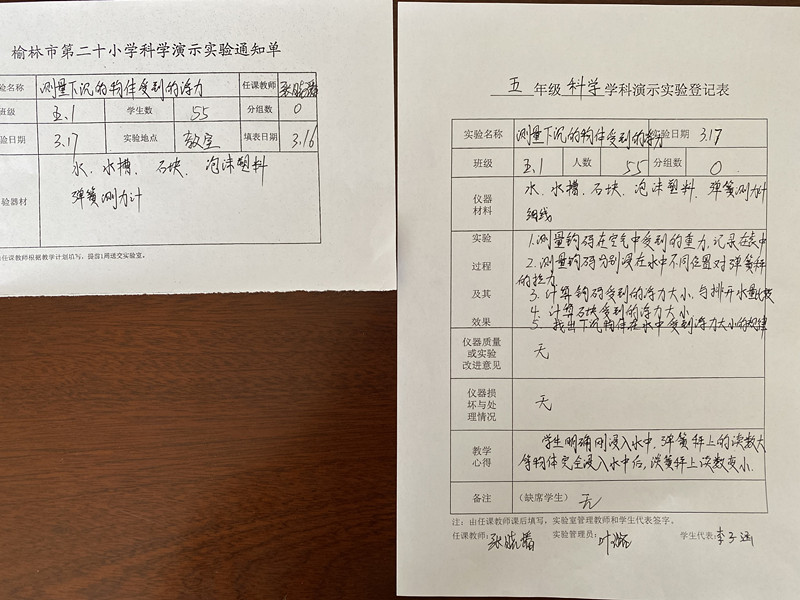 榆林市第二十小学科学演示实验通知单
验名称 测量下沉的物体受到的浮力 任课教师
班级 五.1 学生数 55 分组数 0
验日期 3.17 实验地点 教室 填表日期 3.16
验器材 水、水槽、石块、泡沫塑料
弹簧测力计
由任课教师根据教学计划填写，提前1周送交实验室。
五 年级 科学 学科演示实验登记表
实验名称 测量下沉的物体受到的浮力 实验日期 3.17
班级 五.1 人数 55 分组数 0
仪器材料 水、水槽、石块、泡沫塑料、弹簧测力计
细线
实验过程及其效果
1.测量钩码在空气中受到的重力,记录在表中
2.测量钩码分别浸在水中不同位置对弹簧秤
的拉力
3.计算钩码受到的浮力大小,与排开水量比较
4.计算石块受到的浮力大小
5.找出下沉物体在水中受到浮力大小的规律
仪器质量或实验改进意见 无
仪器损坏与处理情况 无
教学心得 学生明确刚浸入水中,弹簧秤上的读数大
等物体完全浸入水中后,弹簧秤上读数变小.
备注 （缺席学生） 无
注：由任课教师课后填写，实验室管理教师和学生代表签字。
任课教师: 实验管理员: 叶 学生代表:李子涵